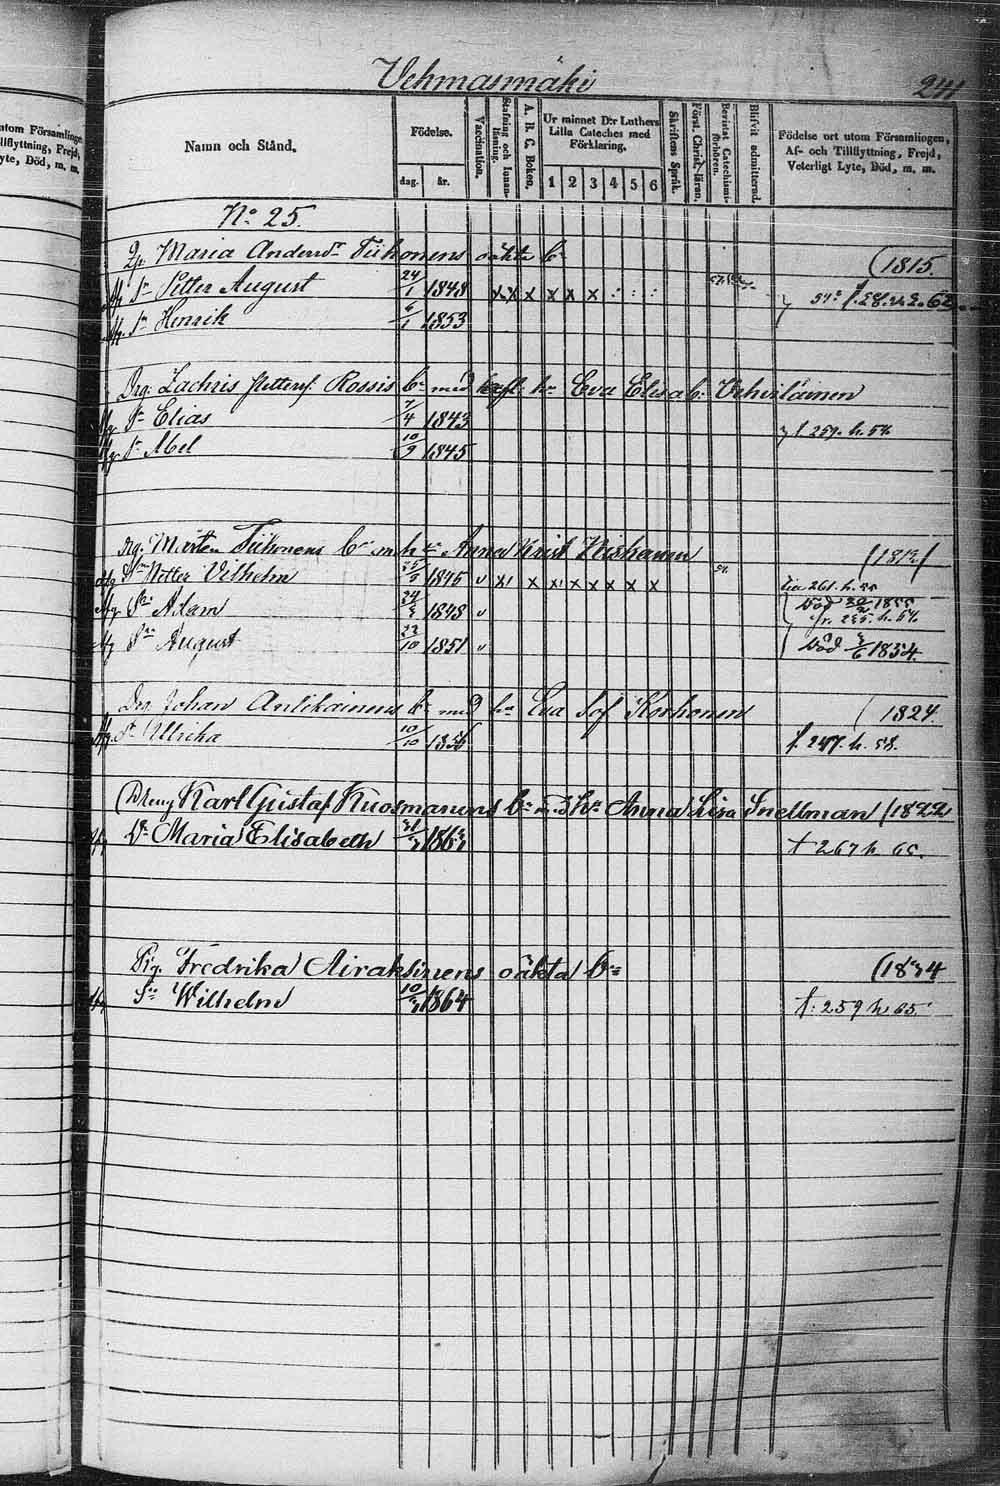 Vehmasmäki
241
utom Församlingen,
Tillflyttning, Frejd,
Lyte, Död, m. m.
Namn och Stånd.
Födelse.
dag.
år.
Vaccination.
Stafning och Innanläsning.
A. B. C. Boken.
Ur minnet D:r Luthers Lilla Cateches med Förklaring.
1 2 3 4 5 6
Skriftens Språk.
Först. Christ.-läran.
Bevistat Catechismi-förhören.
Blifvit admitterad.
Födelse ort utom Församlingen, Af- och Tillflyttning, Frejd, Veterligt Lyte, Död, m. m.
No 25.
Maria Andersdr Tiihonens oäkta bn (1815.
Sn Petter August 24/1 1848 x x x x x x : : : f. 28. 62
Sn Henrik 6/1 1853
Drg: Zachris Petterss: Rossis bn med hr Eva Elisab: Vehviläinen
Sn Elias 7/4 1843 f. 259. h. 54
Sn Abel 10/9 1845
Drg: Mårten Tiihonens bn m hu Anna Krist (1812)
Sn Petter Vilhelm 25/5 1845 v x x x x x x x x 261. h. 55
Sn Adam 24/3 1848 v Död 20/2 1855
235. h. 54
Sn August 22/10 1851 v Död 3/6 1854.
Drg Johan Antikainens bn med hu Eva Sof Korhonen (1824
Ulrika 10/10 f. 247. h. 58.
Dreng Karl Gustaf Kuosmanens bn med hu Anna Lisa Snellman (1822
Dr Maria Elisabeth 31/7 1863 f 267 h 65.
Pig. Fredrika Airaksinens oäkta bn (1834
Sn Wilhelm 10/7 1864 f: 259 h 65.